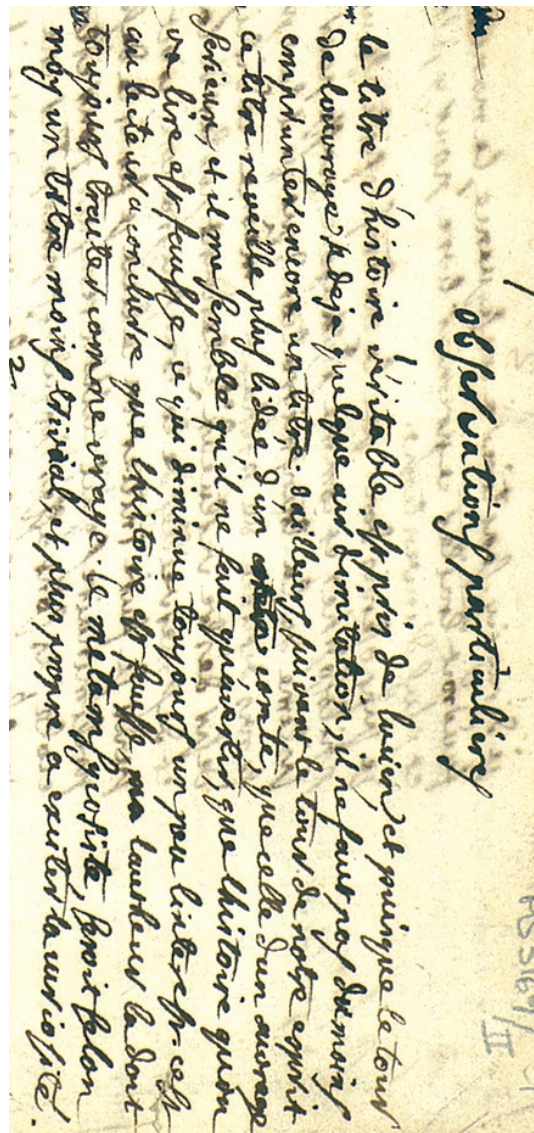 observations particulieres
le titre d'histoire véritable est pris de lucien, et puisque le tour
de l'ouvrage a deja quelque air d'imitation, il ne faut pas du moins
emprunter encore un titre. d'ailleurs suivant le tour de notre esprit
ce titre reveille plus l'idée d'un conte, que celle d'un ouvrage
serieux, et il me semble qu'il ne fait qu'avertir, que l'histoire qu'on
va lire est fausse, ce qui diminue toujours un peu l'interest. c'est
au lecteur a conclure que l'histoire est fausse, l'autheur la doit
toujours traiter comme vraye. le metamsycosite seroit selon
moy un titre moins trivial, et plus propre a exciter la curiosité.
MS 3169/II